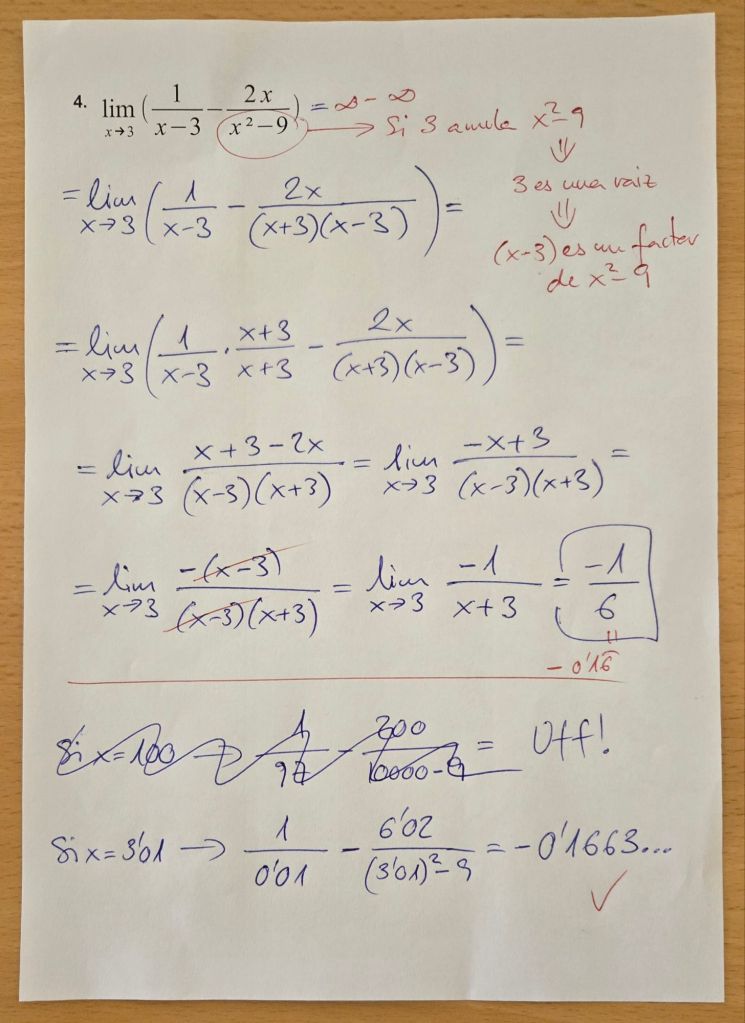 4. lim x→3 (1/(x−3) − 2x/(x²−9)) = ∞ − ∞
Si 3 anula x²−9
⇓
3 es una raiz
⇓
(x-3) es un factor
de x²−9
= lim x→3 (1/(x-3) − 2x/((x+3)(x-3))) =
= lim x→3 (1/(x-3) · (x+3)/(x+3) − 2x/((x+3)(x-3))) =
= lim x→3 (x+3−2x)/((x-3)(x+3)) = lim x→3 (−x+3)/((x-3)(x+3)) =
= lim x→3 −(x-3)/((x-3)(x+3)) = lim x→3 −1/(x+3) = −1/6
=
− 0'16̅
Si x=100 → 1/97 − 200/(10000-9) = Uff!
Si x=3'01 → 1/0'01 − 6'02/((3'01)²−9) = −0'1663... ✓